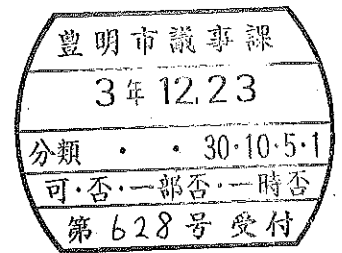 豊明市議事課
3年12.23
分類 ・ ・ 30・10・5・1
可・否・一部否・一時否
第628号受付